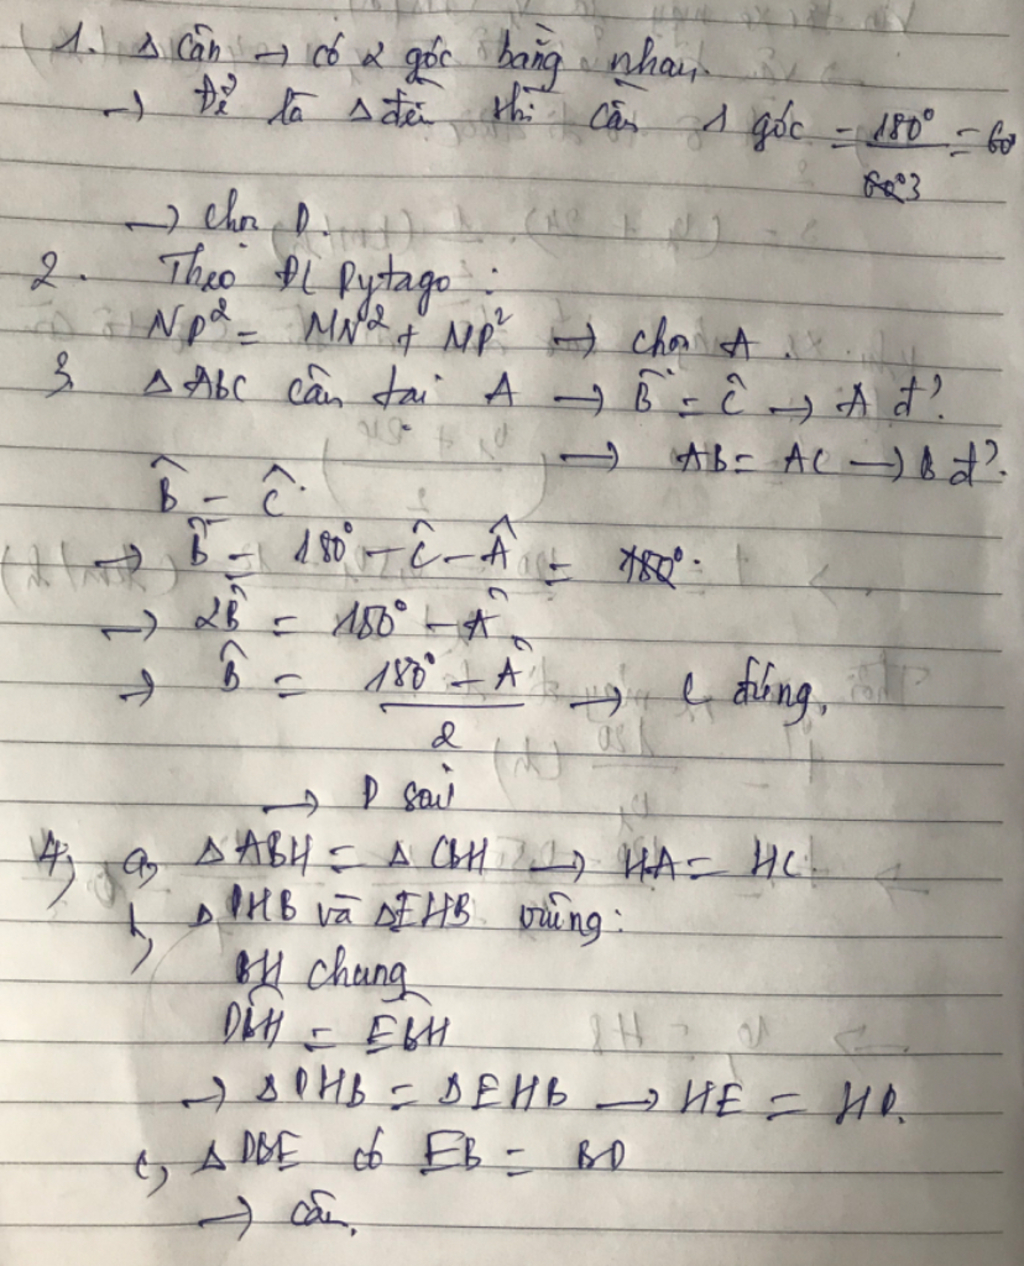 1. Δ cân → có 2 góc bằng nhau.
→ Để là Δ đều thì cần 1 góc = 180° / 3 = 60
→ chọn D.
2. Theo ĐL Pytago :
NP² = MN² + MP² → chọn A.
3 ΔABC cân tại A → B̂ = Ĉ → A đ?.
→ AB = AC → B đ?.
B̂ = Ĉ.
→ B̂ = 180° - Ĉ - Â = 180°.
→ 2B̂ = 180° - Â.
→ B̂ = (180° - Â) / 2 → C đúng.
→ D sai
4, a, ΔABH = ΔCBH → HA = HC
b, ΔDHB và ΔEHB vuông :
BH chung
DBH = EBH
→ ΔDHB = ΔEHB → HE = HD.
c, ΔDBE có EB = BD
→ cân.